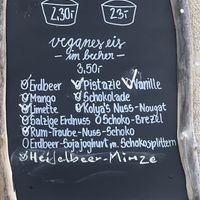 2,30,- 23,-
veganes eis
- im becher -
3,50,-
Erdbeer Pistazie Vanille
Mango Schokolade
Limette Kolya's Nuss-Nougat
Salzige Erdnuss Schoko-Brezel
Rum-Traube-Nuss-Schoko
Erdbeer-Sojajoghurt m. Schokosplittern
Heidelbeer-Minze